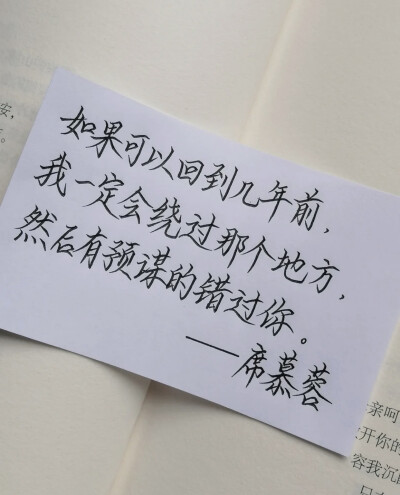 如果可以回到几年前，
我一定会绕过那个地方，
然后有预谋的错过你。
——席慕蓉
安，
。
亲呵
开你的
容我沉